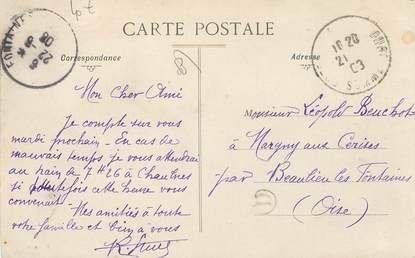 10 €
CARTE POSTALE
Correspondance
Adresse
Mon Cher Ami
Je compte sur vous
mardi prochain - En cas de
mauvais temps, je vous attendrai
au train de 7 H 26 à Chaulnes
si toutefois cette heure vous
convenait - Mes amitiés à toute
votre famille et bien à vous
Monsieur Léopold
à Margny aux Cerises
par Beaulieu les Fontaines
(Oise)